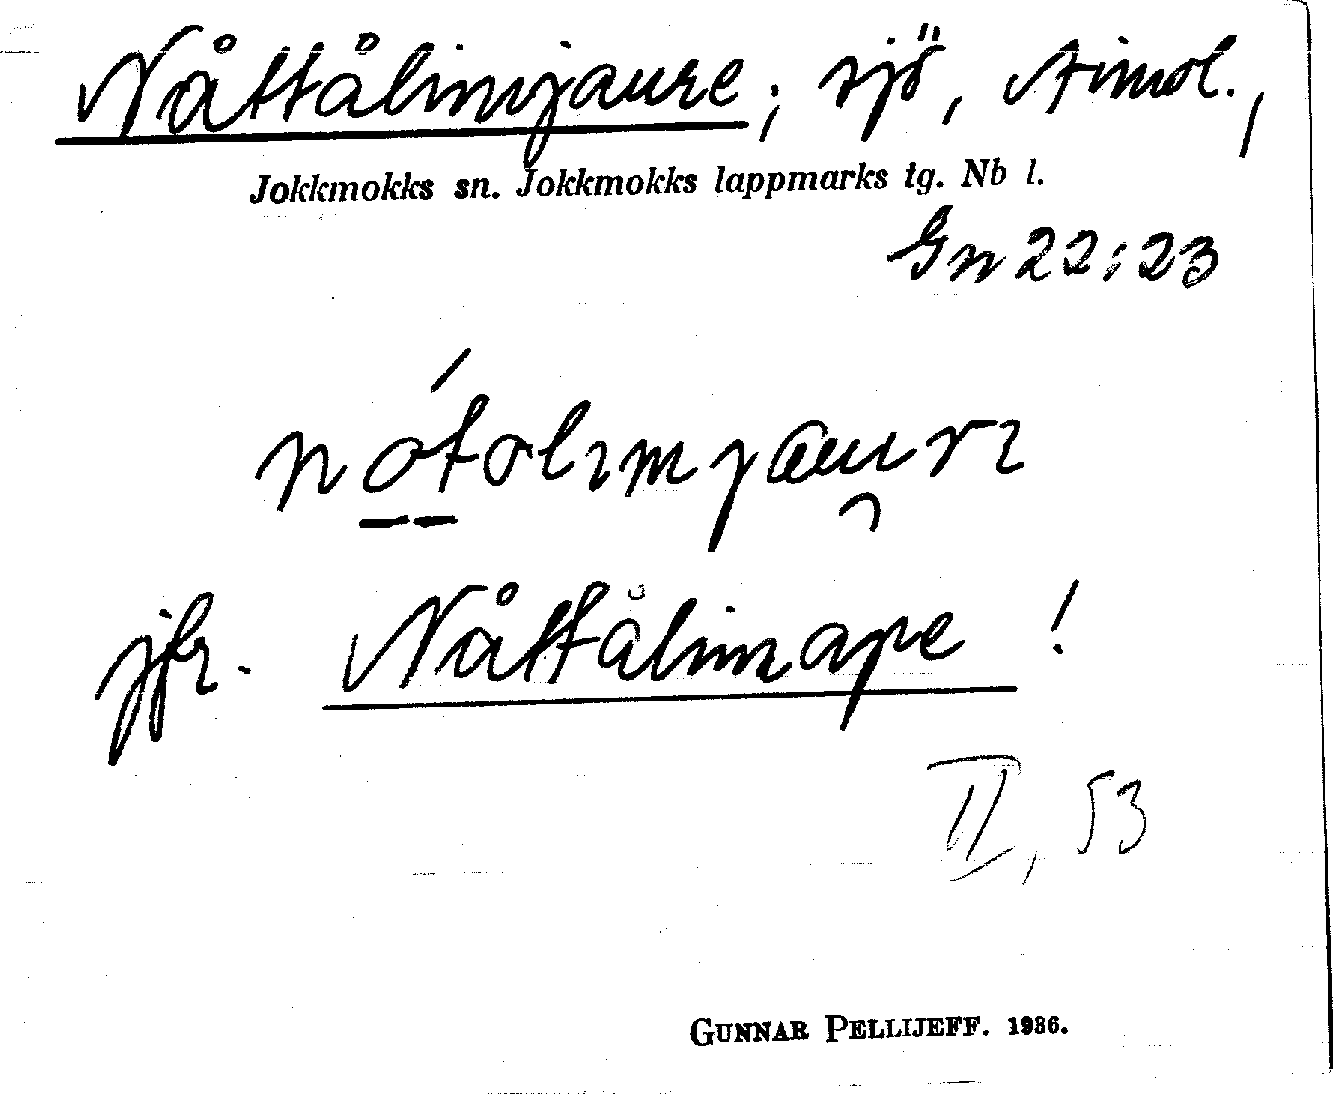 Nåttålimjaure; sjö,
Jokkmokks sn. Jokkmokks lappmarks tg. Nb l.
Gn 22:23
nótolımjauvrı
jfr. Nåttålimape !
II, 53
GUNNAR PELLIJEFF. 1936.